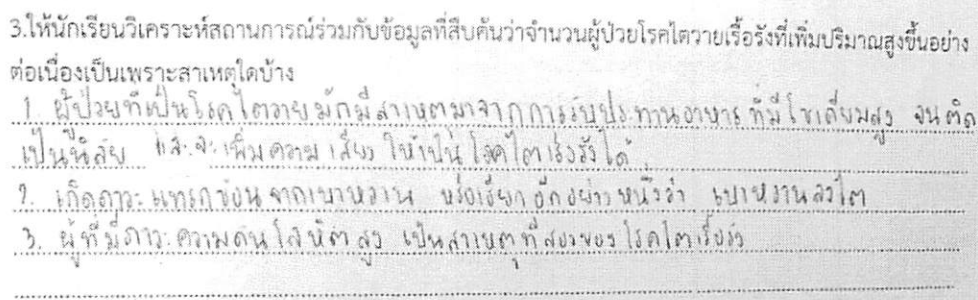 3.ให้นักเรียนวิเคราะห์สถานการณ์ร่วมกับข้อมูลที่สืบค้นว่าจำนวนผู้ป่วยโรคไตวายเรื้อรังที่เพิ่มปริมาณสูงขึ้นอย่าง
ต่อเนื่องเป็นเพราะสาเหตุใดบ้าง
1. ผู้ป่วยที่เป็นโรคไตวายมักมีสาเหตุมาจากการรับประทานอาหาร ที่มีโซเดียมสูง จนติด
เป็นนิสัย และจะเพิ่มความเสี่ยง ให้เป็นโรคไตเรื้อรังได้
2. เกิดภาวะแทรกซ้อนจากเบาหวาน หรือเรียกอีกอย่างหนึ่งว่า เบาหวานลงไต
3. ผู้ที่มีภาวะความดันโลหิตสูง เป็นสาเหตุที่สองของโรคไตเรื้อรัง